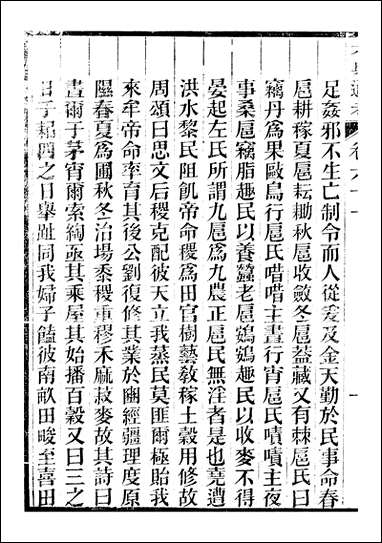 足姦邪不生亡制令而人從爰及金天勤於民事命春
扈耕稼夏扈耘耡秋扈收斂冬扈蓋藏又有棘扈民曰
竊丹爲果敺鳥行扈民唶唶主晝行宵扈民嘖嘖主夜
事桑扈竊脂趣民以養蠶老扈鷃鷃趣民以收麥不得
晏起左氏所謂九扈爲九農正扈民無淫者是也堯遭
洪水黎民阻飢帝命稷爲田官樹藝敎稼土穀用修故
周頌曰思文后稷克配彼天立我蒸民莫匪爾極貽我
來牟帝命率育其後公劉復修其業於豳經疆理度原
隰春夏爲圃秋冬治場黍稷重穋禾麻菽麥故其詩曰
晝爾于茅宵爾索綯亟其乘屋其始播百穀又曰三之
日于耜四之日舉趾同我婦子饁彼南畝田畯至喜田